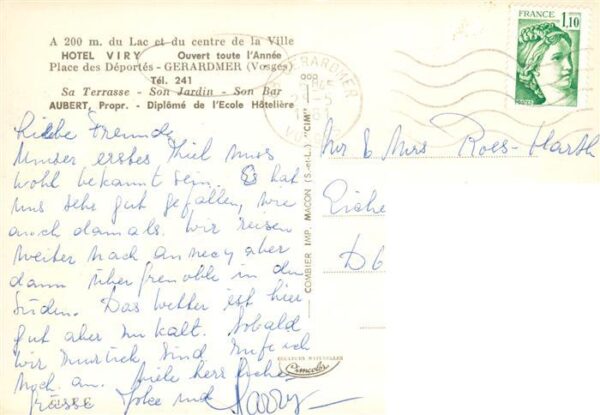 A 200 m. du Lac et du centre de la Ville
HOTEL VIRY Ouvert toute l'Année
Place des Déportés - GERARDMER (Vosges)
Tél. 241
Sa Terrasse - Son Jardin - Son Bar
AUBERT, Propr. - Diplômé de l'Ecole Hôtelière
FRANCE
1,10
GERARDMER
Liebe Freunde
Unser erstes Ziel muss
wohl bekannt sein. Es hat
uns sehr gut gefallen, wie
auch damals. Wir reisen
weiter nach Annecy aber
dann über Grenoble in den
Süden. Das Wetter ist hier
gut aber zu kalt. Sobald
wir zurück sind rufe ich
noch an. Viele herzliche
Grüsse und Harry
COMBIER IMP. MACON (S.-et-L.) "CIM"
Mr & Mrs Roes-Harth
Eiche
D6
COULEURS NATURELLES
Cimcolor